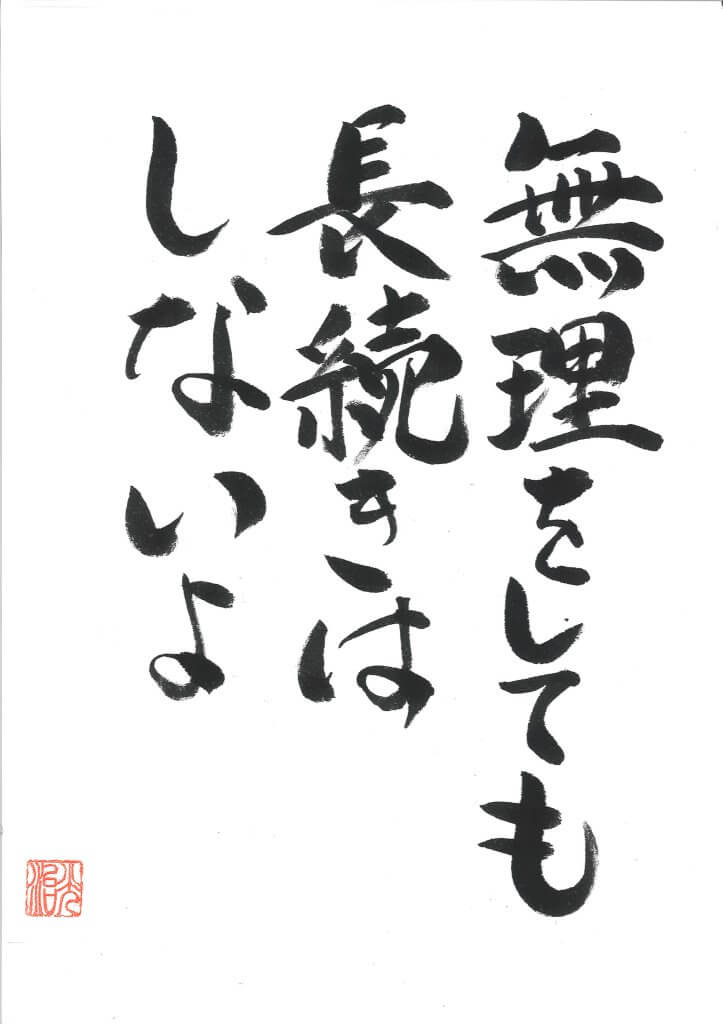 無理をしても
長続きは
しないよ